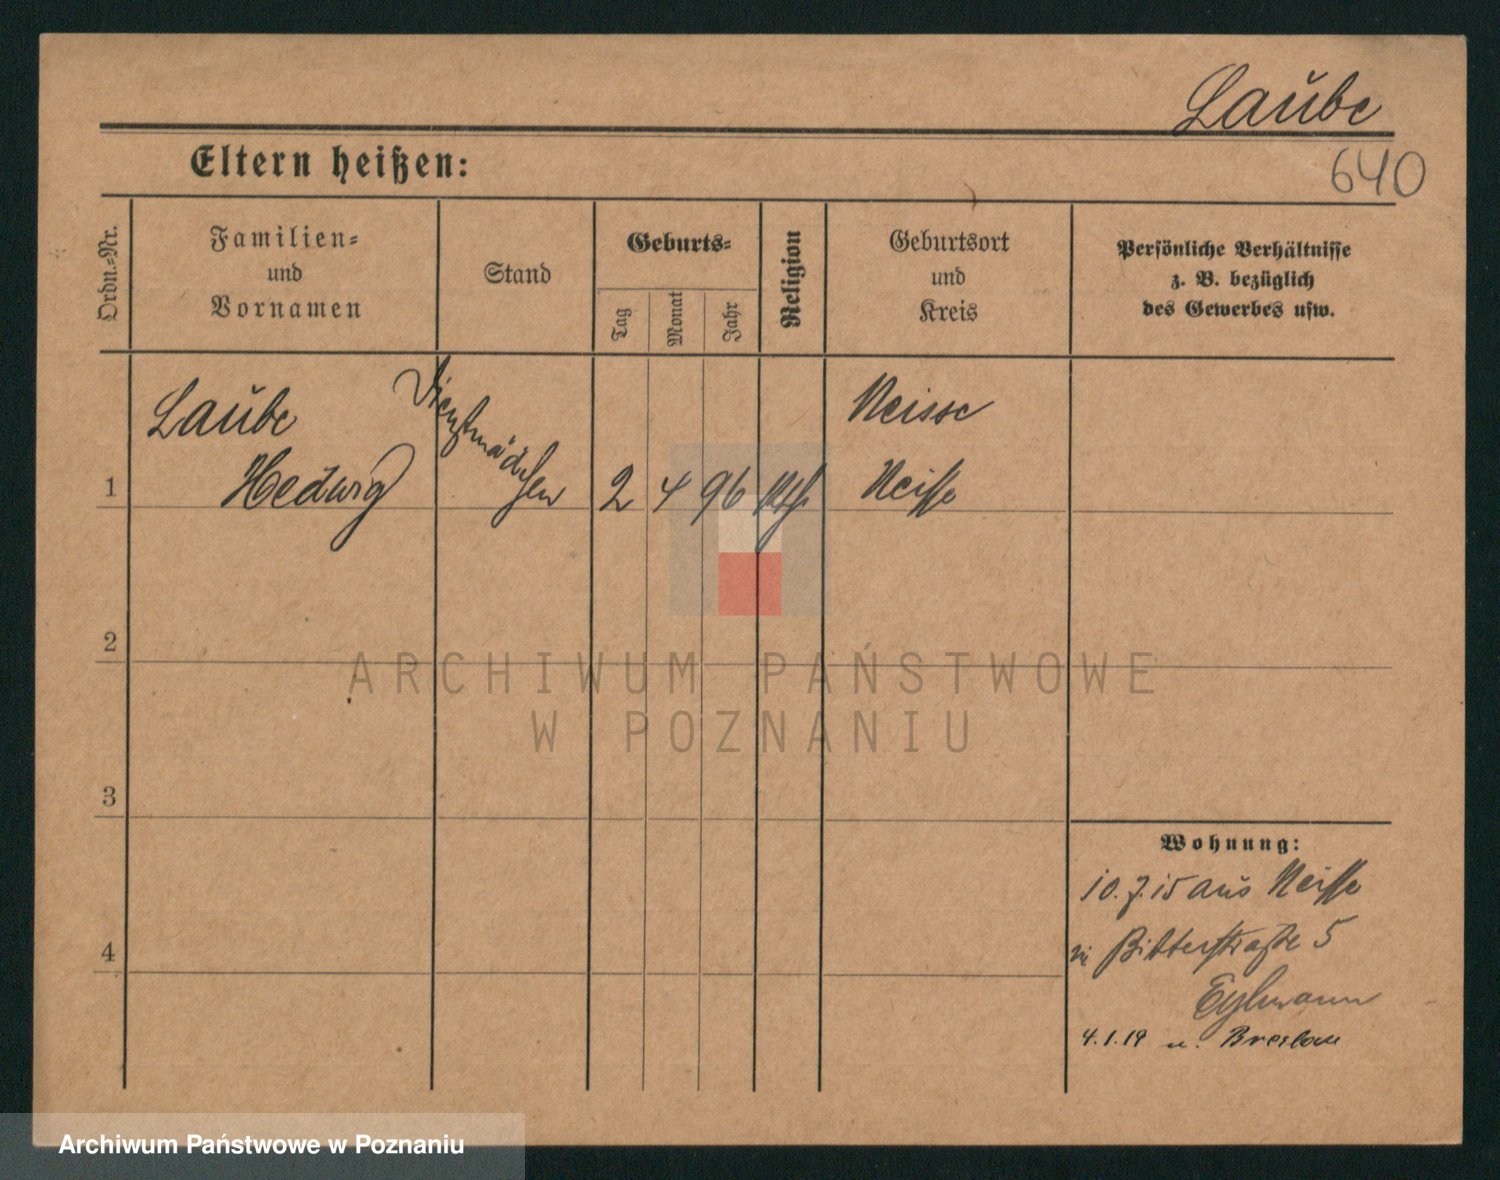 Laube
640
Eltern heißen:
Ordn.-Nr.
Familien-
und
Vornamen
Stand
Geburts-
Tag
Monat
Jahr
Religion
Geburtsort
und
Kreis
Persönliche Verhältnisse
z. B. bezüglich
des Gewerbes usw.
Laube
Hedwig
Dienstmädchen
1
2 4 96 kth.
Neisse
Neisse
2
3
4
Wohnung:
10.7.15 aus Neisse
Ritterstraße 5
Eylmann
4.1.19 n. Breslau
ARCHIWUM PAŃSTWOWE
W POZNANIU
Archiwum Państwowe w Poznaniu